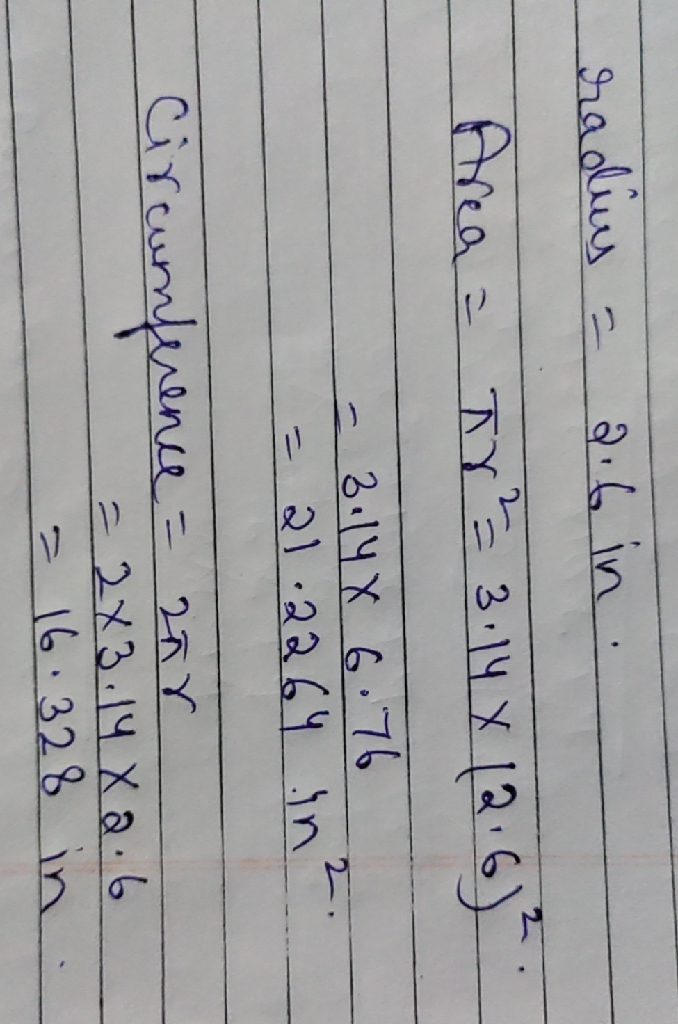 radius = 2.6 in.
Area = πr² = 3.14 × (2.6)².
= 3.14 × 6.76
= 21.2264 in².
Circumference = 2πr
= 2×3.14 × 2.6
= 16.328 in.